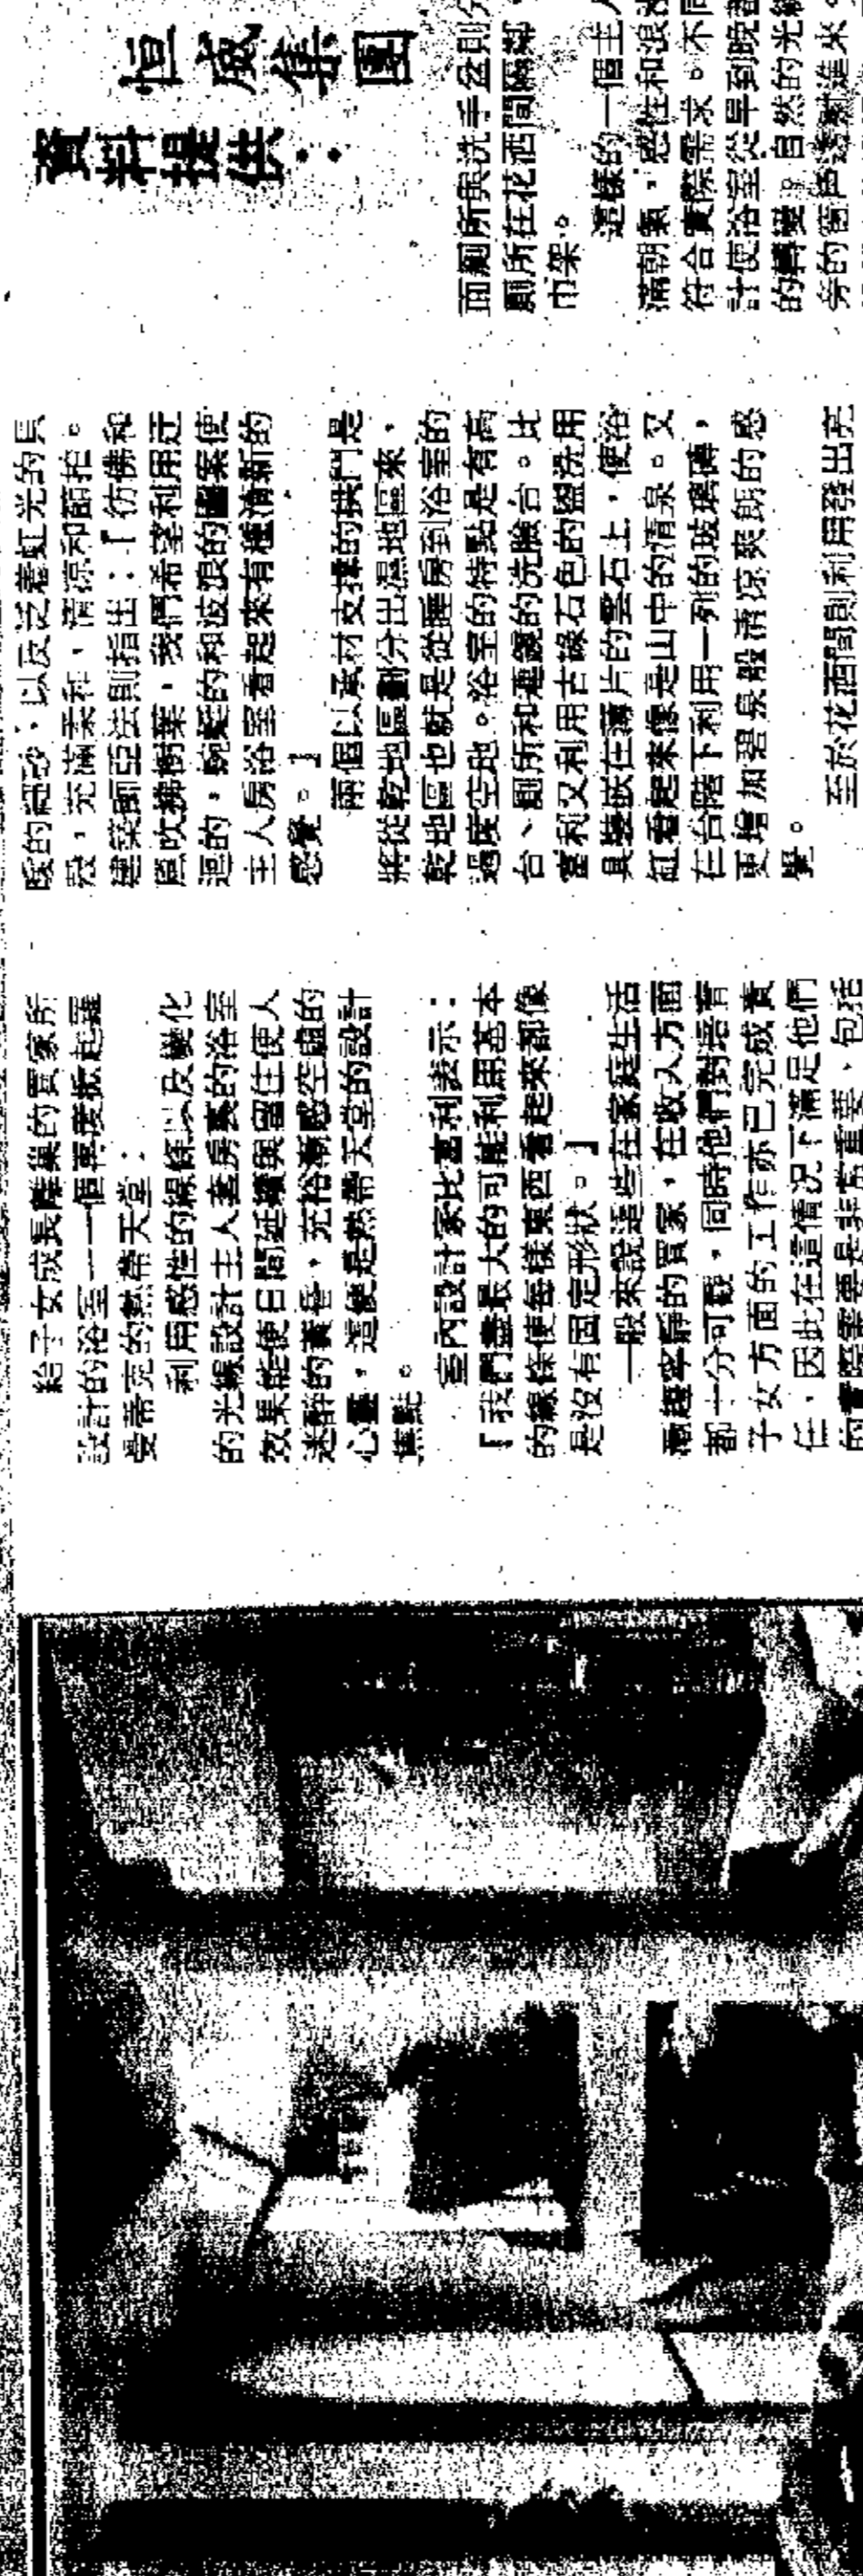 給子女成長離巢的買家所
設計的浴室——一個再度掀起羅
曼蒂克的熱帶天堂：
利用感性的線條以及變化
的光線設計主人套房裏的浴室
效果能使日間延續與留住使人
迷醉的黃昏，充裕漸感空虛的
心靈，這便是熱帶天堂的設計
焦點。
室內設計家比塞利表示：
「我們盡最大的可能利用基本
的線條使每樣東西看起來都像
是沒有固定形狀。」
一般來說這些在家庭生活
漸趨寧靜的買家，在收入方面
都十分可觀，同時他們對培育
子女方面的工作亦已完成責
任，因此在這情況下滿足他們
的實際需要是非常重要，包括
暖的細砂，以及反泛着虹光的貝
殼，充滿柔和，清涼和節拍。
建築師亞法則指出：「彷彿和
風吹拂樹葉，我們希望利用迂
迴的，蜿蜒的和波浪的圖案使
主人房浴室看起來有種清新的
感覺。」
兩個以承材支撐的拱門是
將從乾地區劃分出濕地區來，
乾地區也就是從睡房到浴室的
過度空地。浴室的特點是有高
台、廁所和連鏡的洗臉台。比
塞利又利用古綠石色的盥洗用
具裝嵌在薄片的雲石上，使浴
缸看起來像是山中的清泉。又
在台階下利用一列的玻璃磚，
更增加碧泉般清涼爽朗的感
覺。
至於花洒間則利用發出亮
面廁所與洗手盆則分
廁所在花洒間隔鄰，
巾架。
這樣的一個主人
滿朝氣，感性和浪漫
符合實際需求。不同
計使浴室從早到晚都
的轉變。自然的光線
旁的窗戶透射進來。
資料提供：
恒威集團